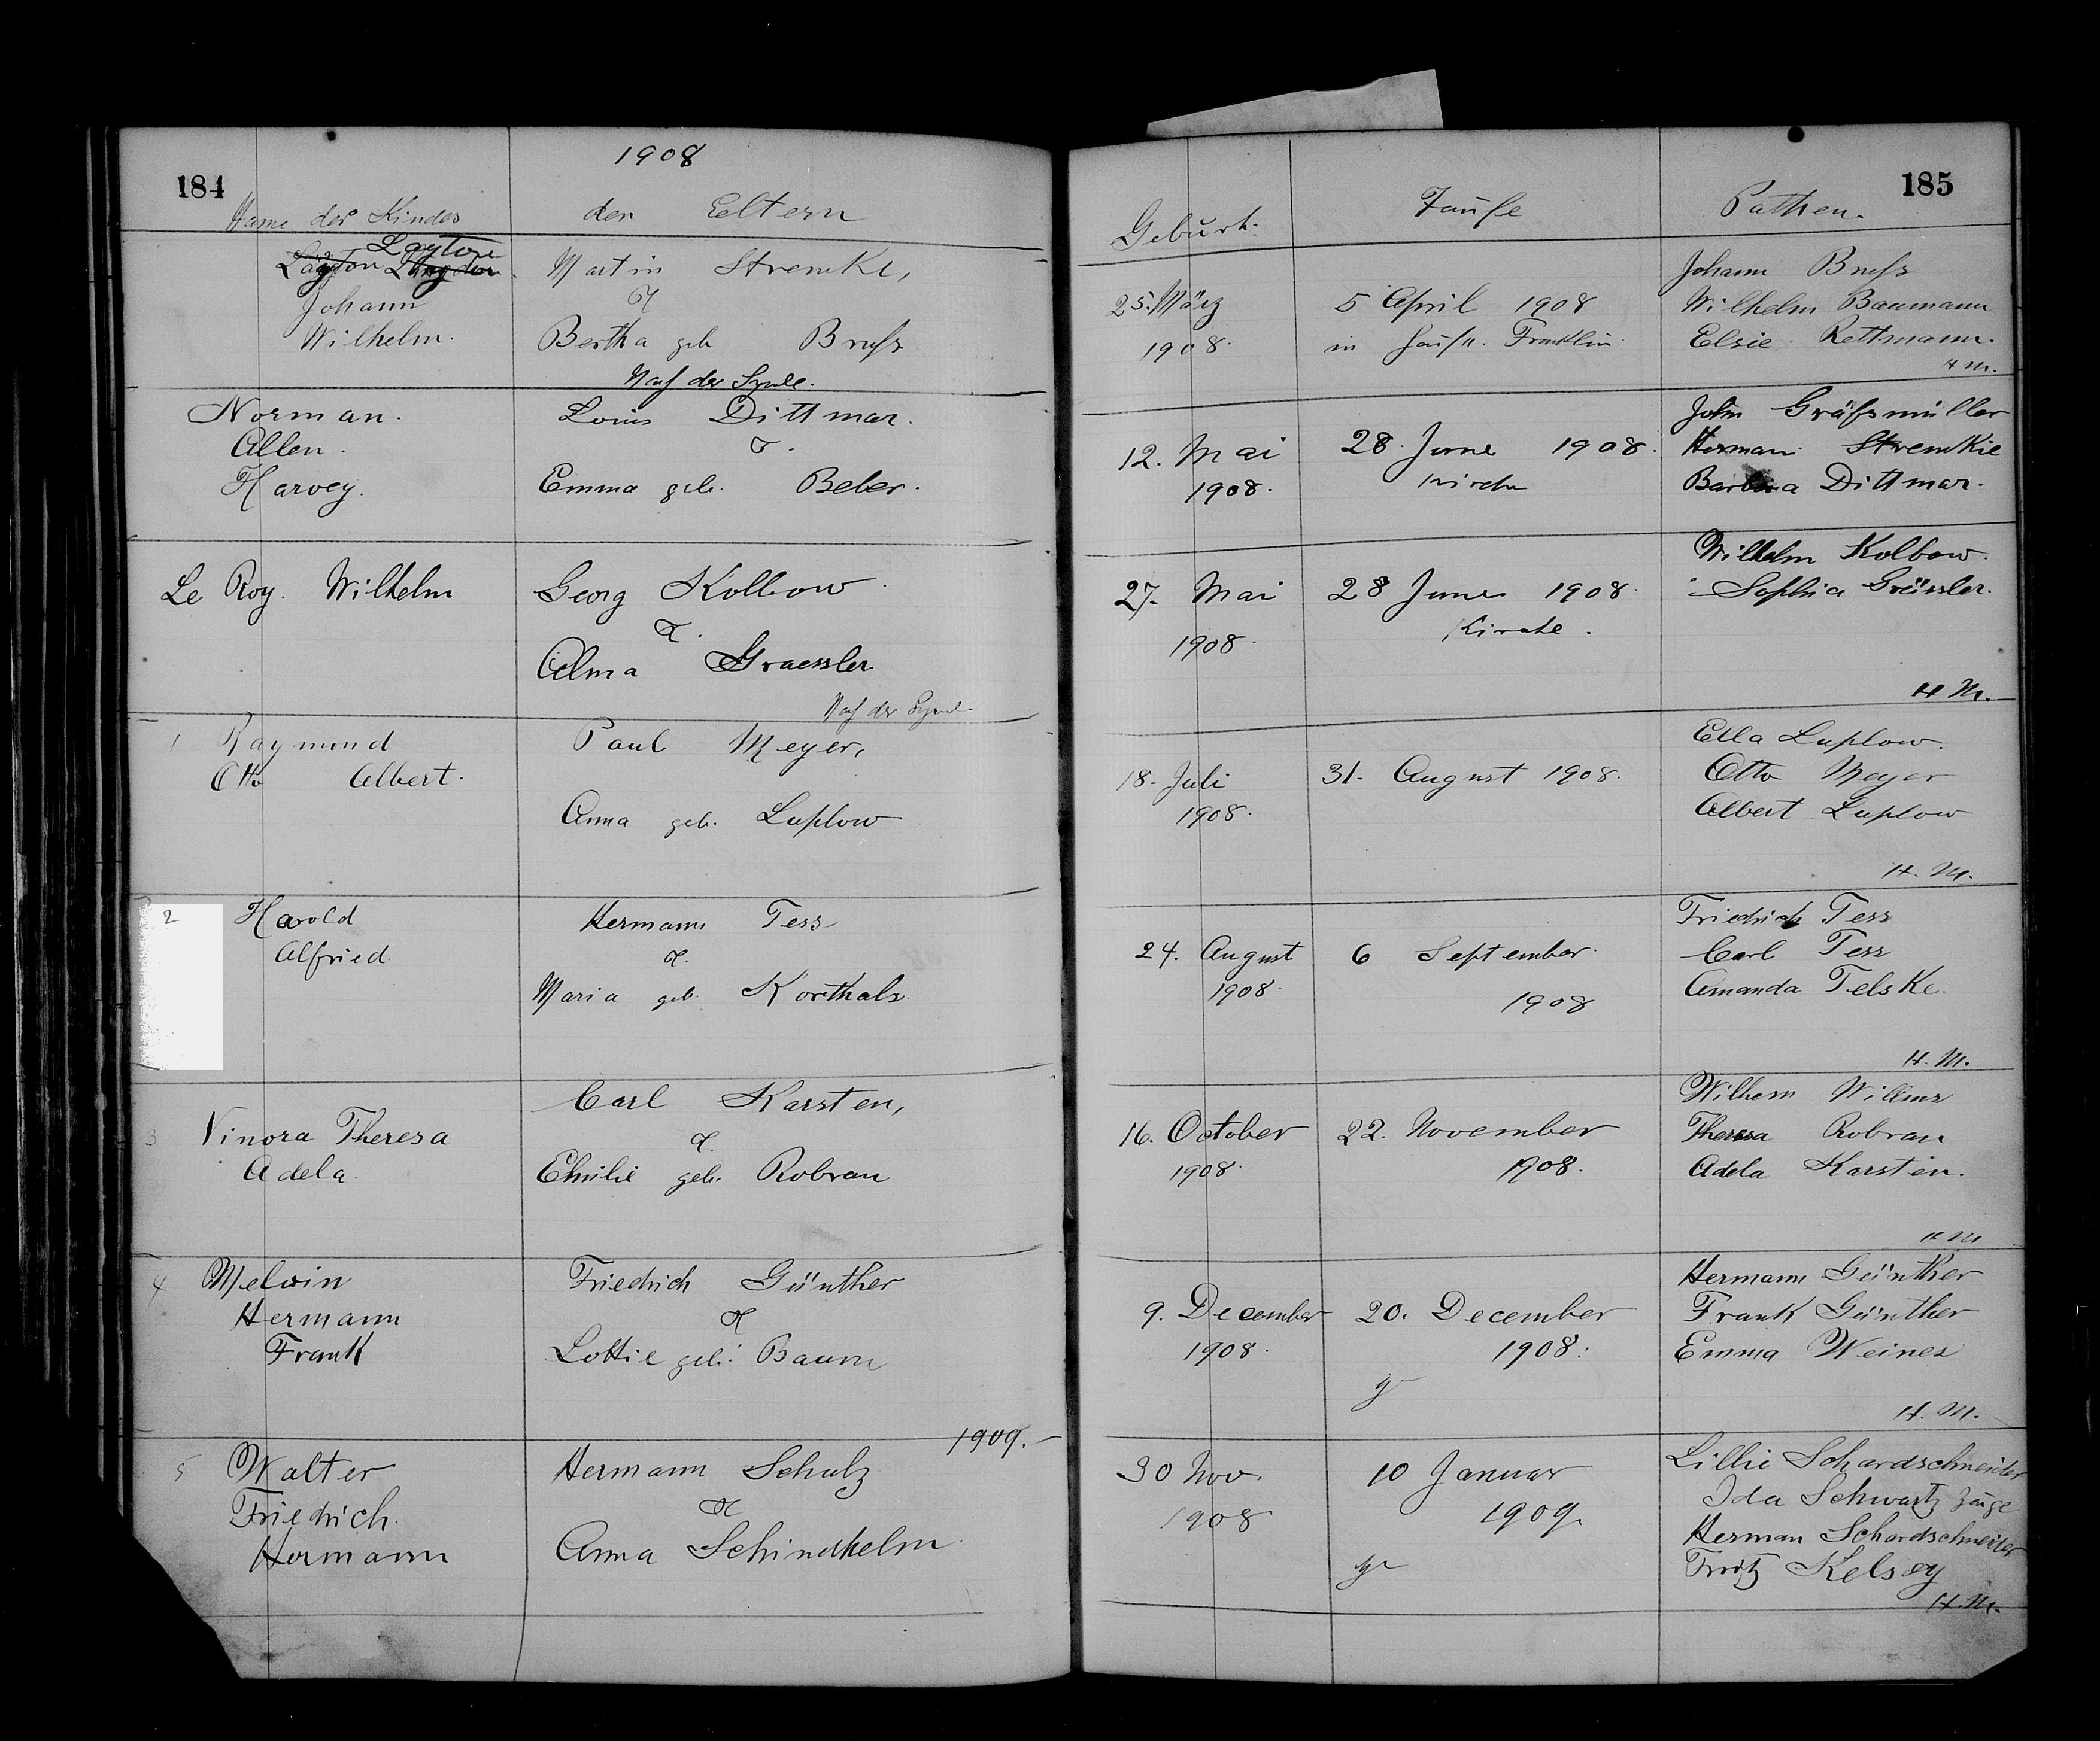 1908
184
Name des Kindes
der Eltern
Layton
Johann
Wilhelm.
Martin Stremke,
Bertha geb Bruß
Norman.
Allen.
Harvey.
Louis Dittmar.
u.
Emma geb. Beber.
Le Roy. Wilhelm
Georg Kolbow.
u.
Alma Graessler
1 Raymund
Otto Albert.
Paul Meyer,
Anna geb. Luplow
2 Harold
Alfried.
Hermann Tess
u.
Maria geb. Korthals
3 Vinora Theresa
Adela.
Carl Karsten,
u.
Emilie geb. Robran
4 Melvin
Hermann
Frank
Friedrich Günther
u
Lottie geb. Baum
1909.
5 Walter
Friedrich.
Hermann
Hermann Schulz
u
Anna Schinshelm
185
Geburt.
Taufe
Pathen.
25. März
1908.
5 April 1908
in Franklin
Johann Bruß
Wilhelm Baumann
Elsie Rettmann.
H M.
12. Mai
1908.
28. June 1908.
Kirche
John Gräßmüller
Herman Stremkie
Barbara Dittmar.
27. Mai
1908.
28 June 1908.
Kirche.
Wilhelm Kolbow.
Sophia Grässler.
H M.
18. Juli
1908.
31. August 1908.
Ella Luplow.
Otto Meyer
Albert Luplow
H. M.
24. August
1908.
6 September
1908
Friedrich Tess
Carl Tess
Amanda Telske
H. M.
16. October
1908.
22. November
1908.
Wilhem Willms
Theresa Robran
Adela Karsten.
H M
9. December
1908.
20. December
1908.
Hermann Günther
Frank Günther
Emma Weines
H. M.
30 Nov.
1908
10 Januar
1909.
Lillie Schardschneider
Ida Schwartz Zeuge
Herman Schardschneider
Fritz Kelsey
H. M.